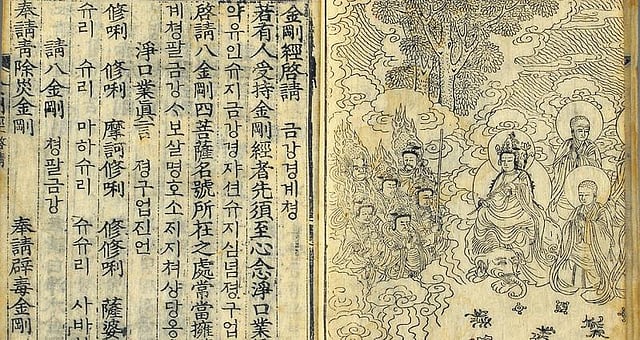 金剛經啓請 금강경계쳥
若有人受持金剛經者先須至心念淨口業
약유인슈지금강경쟈션슈지심념졍구업
啓請八金剛四菩薩名號所在之處常當擁
계쳥팔금강ᄉᆞ보살명호소ᄌᆡ지쳐샹당옹
淨口業眞言 졍구업진언
修唎 修唎 摩訶修唎 修修唎 薩婆
슈리 슈리 마하슈리 슈슈리 사바
請八金剛 쳥팔금강
奉請青除災金剛 奉請辟毒金剛